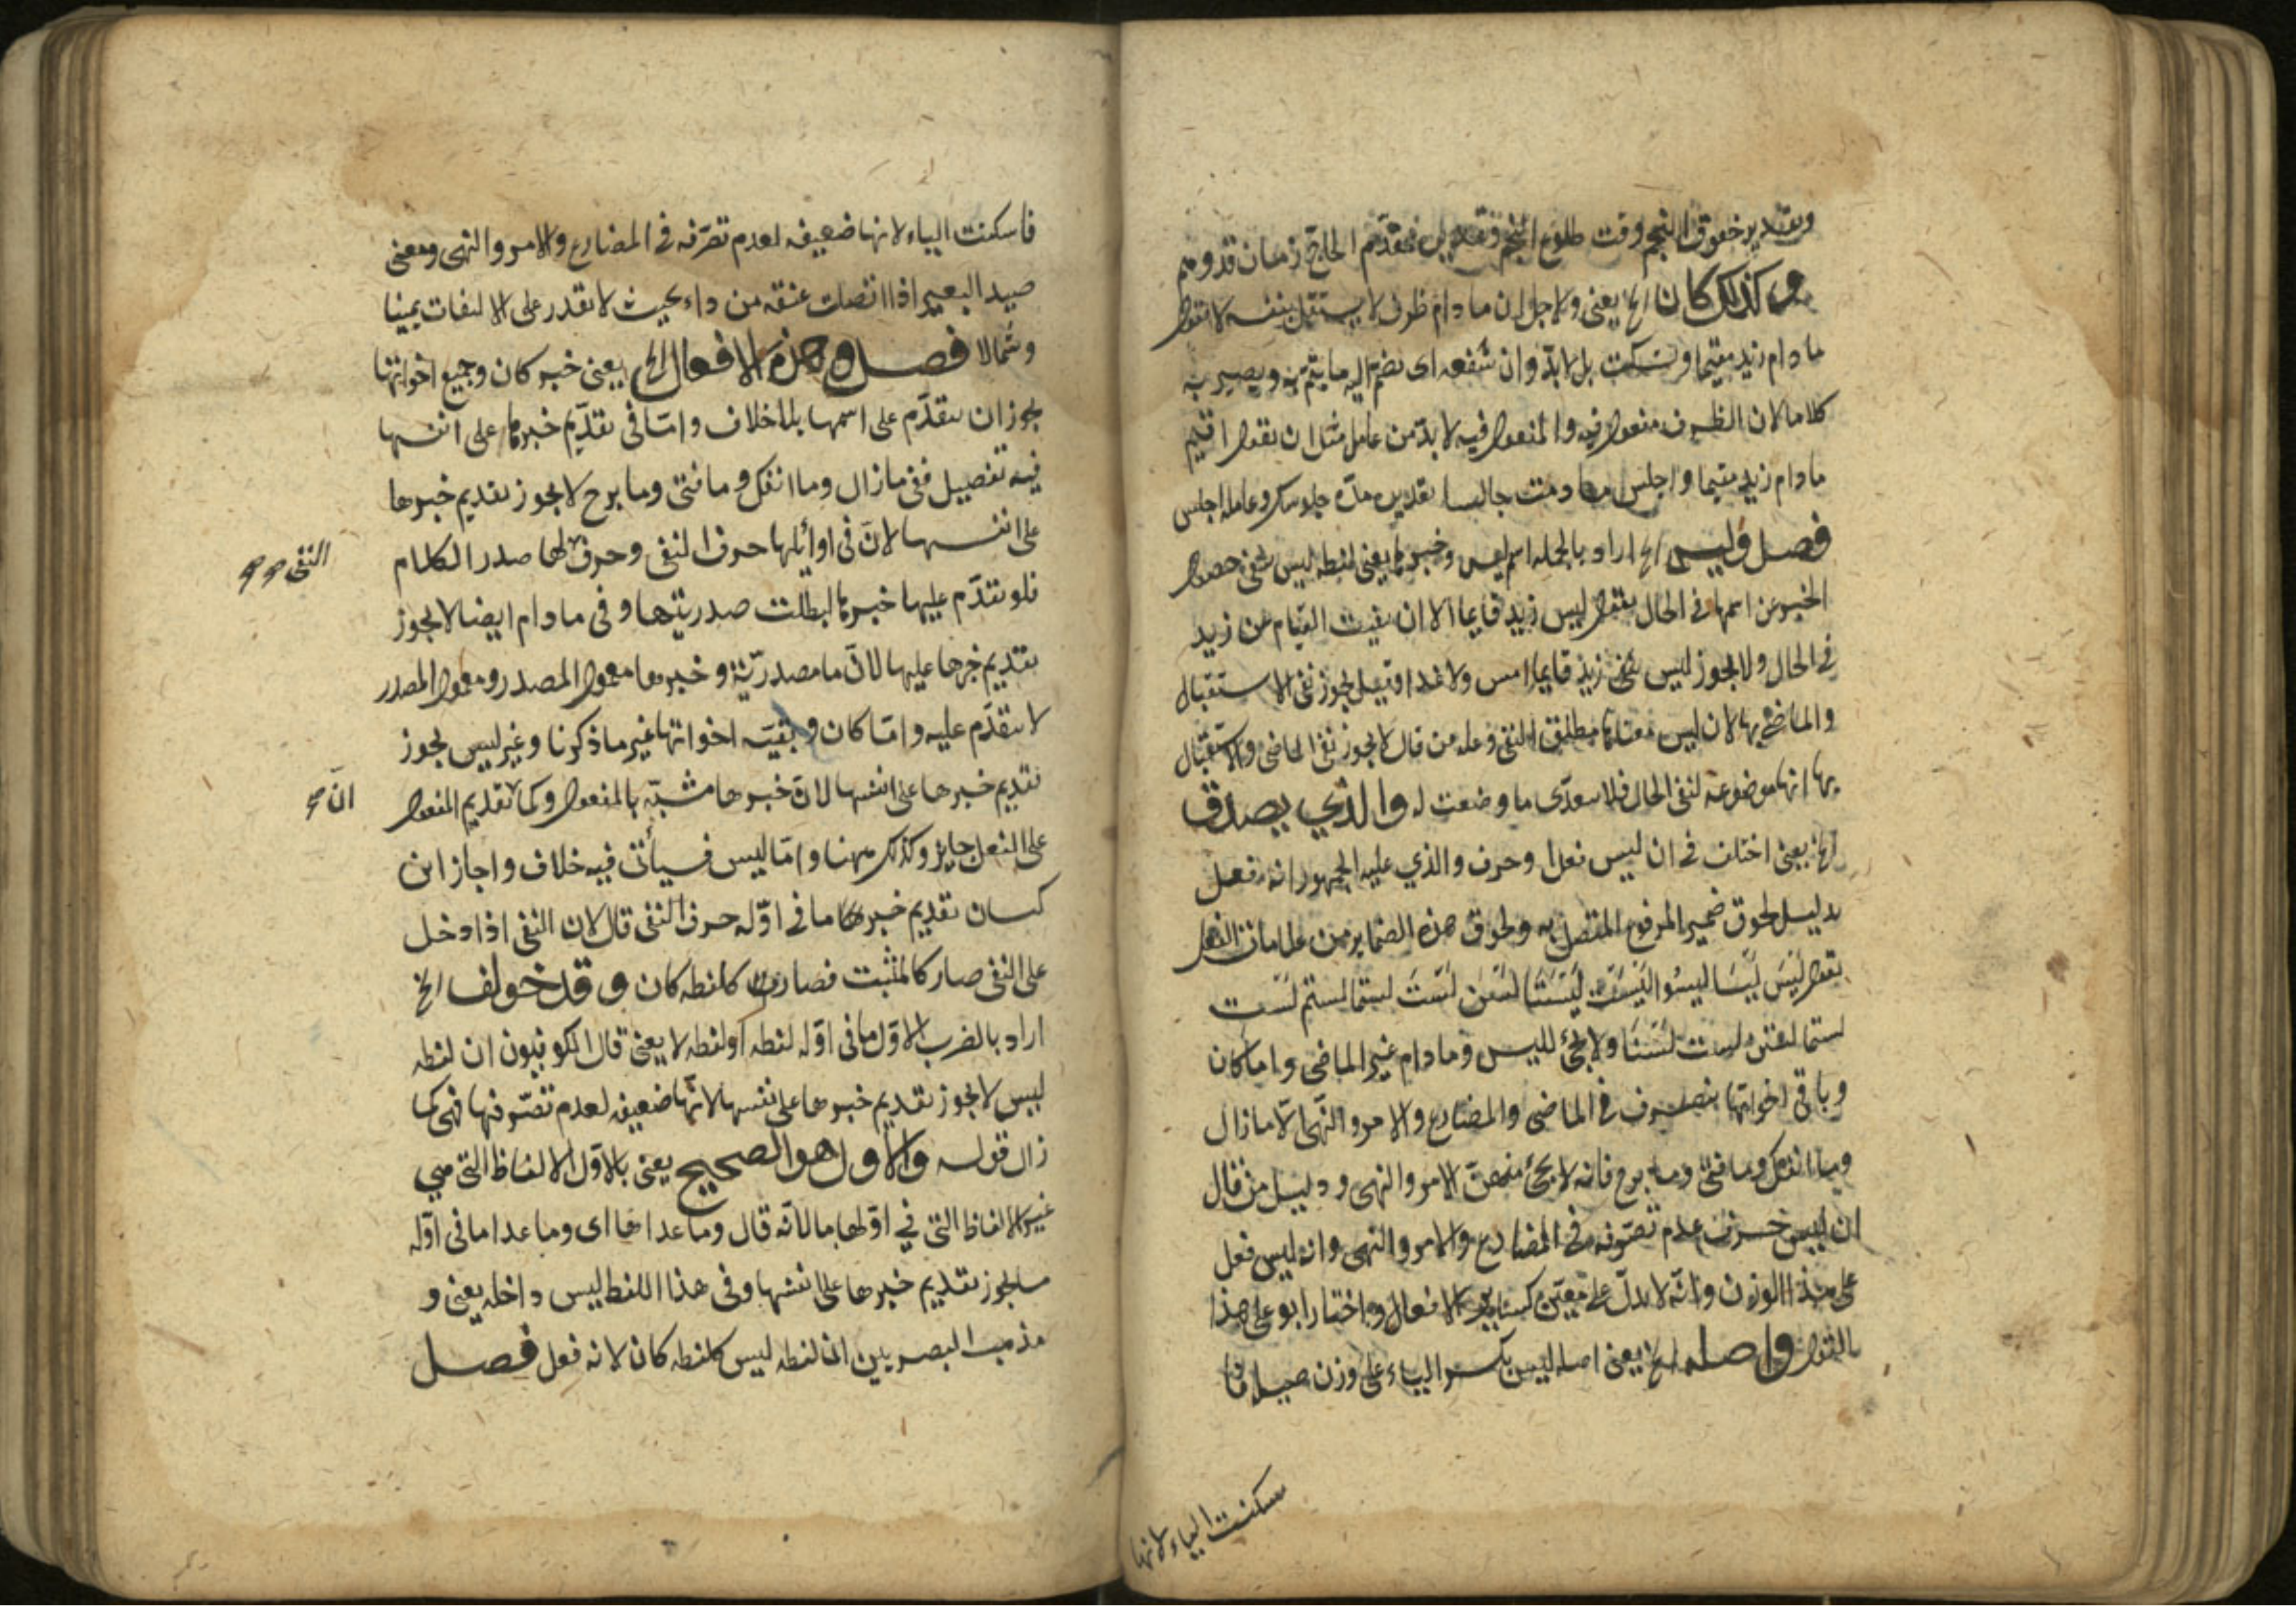 وتقدير خفوق النجم وقت طلوع النجم وتقدير مقدم الحاج زمان قدومهم
وكذلك كان الخ يعنى ولاجل ان ما دام ظرف لا يستقل بنفسه لا تقول
ما دام زيد مقيما وتسكت بل لا بد وان تشفعه اى تضم اليه ما يتم به ويصير به
كلاما لان الظرف مفعول فيه والمفعول فيه لا بد من عامل مثل ان تقول اقيم
ما دام زيد مقيما واجلس ما دمت جالسا تقديره مدة جلوسك وعامله اجلس
فصل وليس الخ اراد بالجمله اسم ليس وخبرها يعنى لفظه ليس تنفى حصول
الخبر عن اسمها فى الحال تقول ليس زيد قايما الان نفيت القيام عن زيد
فى الحال ولا يجوز ليس زيد قايما امس ولا غدا وقيل يجوز نفى الاستقبال
والماضى بها لان ليس معناها مطلق النفى وعلة من قال لا يجوز نفى الماضى والاستقبال
بها انها موضوعة لنفى الحال فلا تتعدى ما وضعت له والذي يصدق
الخ يعنى اختلف فى ان ليس فعل او حرف والذي عليه الجمهور انه فعل
بدليل لحوق ضمير المرفوع المتصل به ولحوق هذه الضماير من علامات الفعل
تقول لَيسَ لَيسَا ليسُوا لَيسَت لَيسَتَا لَسنَ لَستَ لستما لستم لَستِ
لستما لستن لست لَسنَا ولا يجئ لليس وما دام غير الماضى واما كان
وباقى اخواتها يتصرف فى الماضى والمضارع والامر والنهى الا ما زال
وما انفك وما فتئ وما برح فانه لا يجئ منهن الامر والنهى ودليل من قال
ان ليس حرف عدم تصرفه فى المضارع والامر والنهى وانه ليس فعل
على هذا الوزن وانه لا يدل على معين كساير الافعال واختار ابو على هذا
القول واصله الخ يعنى اصله ليس بكسر الياء على وزن صيد فا
سكنت الياء لانها
فاسكنت الياء لانها ضعيفه لعدم تصرفه فى المضارع والامر والنهى ومعنى
صيد البعير اذا اتصلت عنقه من داء بحيث لا يقدر على الالتفات يمينا
وشمالا فصل وهذه الافعال الخ يعنى خبر كان وجميع اخواتها
يجوز ان يتقدم على اسمها بلا خلاف واما فى تقديم خبرها على انفسها
فيه تفصيل ففى ما زال وما انفك وما فتئ وما برح لا يجوز تقديم خبرها
على انفسها لان فى اوائلها حرف النفى وحرف لها صدر الكلام
النفى صح
فلو تقدم عليها خبرها لبطلت صدريتها وفى ما دام ايضا لا يجوز
تقديم خبرها عليها لان ما مصدرية وخبرها معمول المصدر ومعمول المصدر
لا يتقدم عليه واما كان وبقيه اخواتها غير ما ذكرنا وغير ليس يجوز
تقديم خبرها على انفسها لان خبرها مشبه بالمفعول وكما تقديم المفعول
ان صح
على الفعل جايز وكذلك ههنا واما ليس فسيأتى فيه خلاف واجاز ابن
كسان تقديم خبرها ما فى اوله حرف النفى قال لان النفى اذا دخل
على النفى صار كالمثبت فصارت كلفظه كان وقد خولف الخ
اراد بالضرب الاول ما فى اوله لفظه او لفظه لا يعنى قال الكوفيون ان لفظه
ليس لا يجوز تقديم خبرها على نفسها لانها ضعيفه لعدم تصرفها فهى كما
زال قوله والاول هو الصحيح يعنى بالاول الالفاظ التى هي
غير الالفاظ التى فى اولها ما لانه قال وما عداها اى وما عدا ما فى اوله
ما يجوز تقديم خبرها على انفسها وفى هذا اللفظ ليس داخله يعنى و
مذهب البصريين ان لفظه ليس كلفظه كان لانه فعل فصل